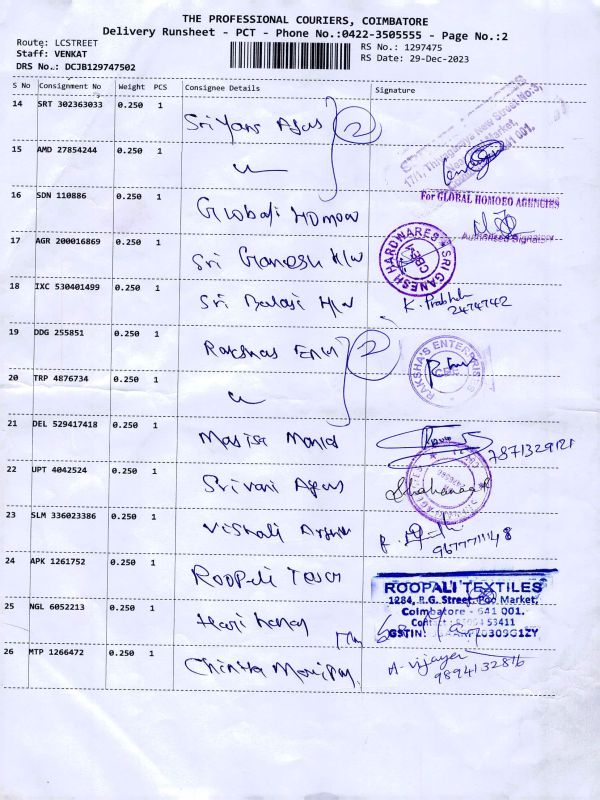 THE PROFESSIONAL COURIERS, COIMBATORE
Delivery Runsheet - PCT - Phone No.:0422-3505555 - Page No.:2
Route: LCSTREET
Staff: VENKAT
DRS No.: DCJB129747502
RS No.: 1297475
RS Date: 29-Dec-2023
S No Consignment No Weight PCS Consignee Details Signature
14 SRT 302363033 0.250 1 Sriyans Agus 2
15 AMD 27854244 0.250 1
16 SDN 110886 0.250 1 Global Homoeo
For GLOBAL HOMOEO AGENCIES
Authorised Signatory
17 AGR 200016869 0.250 1 Sri Ganesh H/W
SRI GANESH HARDWARES
CBE
18 IXC 530401499 0.250 1 Sri Balaji H/W
K. Prabhu
2474742
19 DDG 255851 0.250 1 Rakshas 2
RAKSHA'S ENTERPRISES
20 TRP 4876734 0.250 1
21 DEL 529417418 0.250 1
7871329121
22 UPT 4042524 0.250 1 Srivari
23 SLM 336023386 0.250 1 Vishali
24 APK 1261752 0.250 1 Roopali
ROOPALI TEXTILES
1284, R.G. Street, Poo Market,
Coimbatore - 641 001.
25 NGL 6052213 0.250 1 Hari
26 MTP 1266472 0.250 1 Chinta
A. Vijayan
9894132816